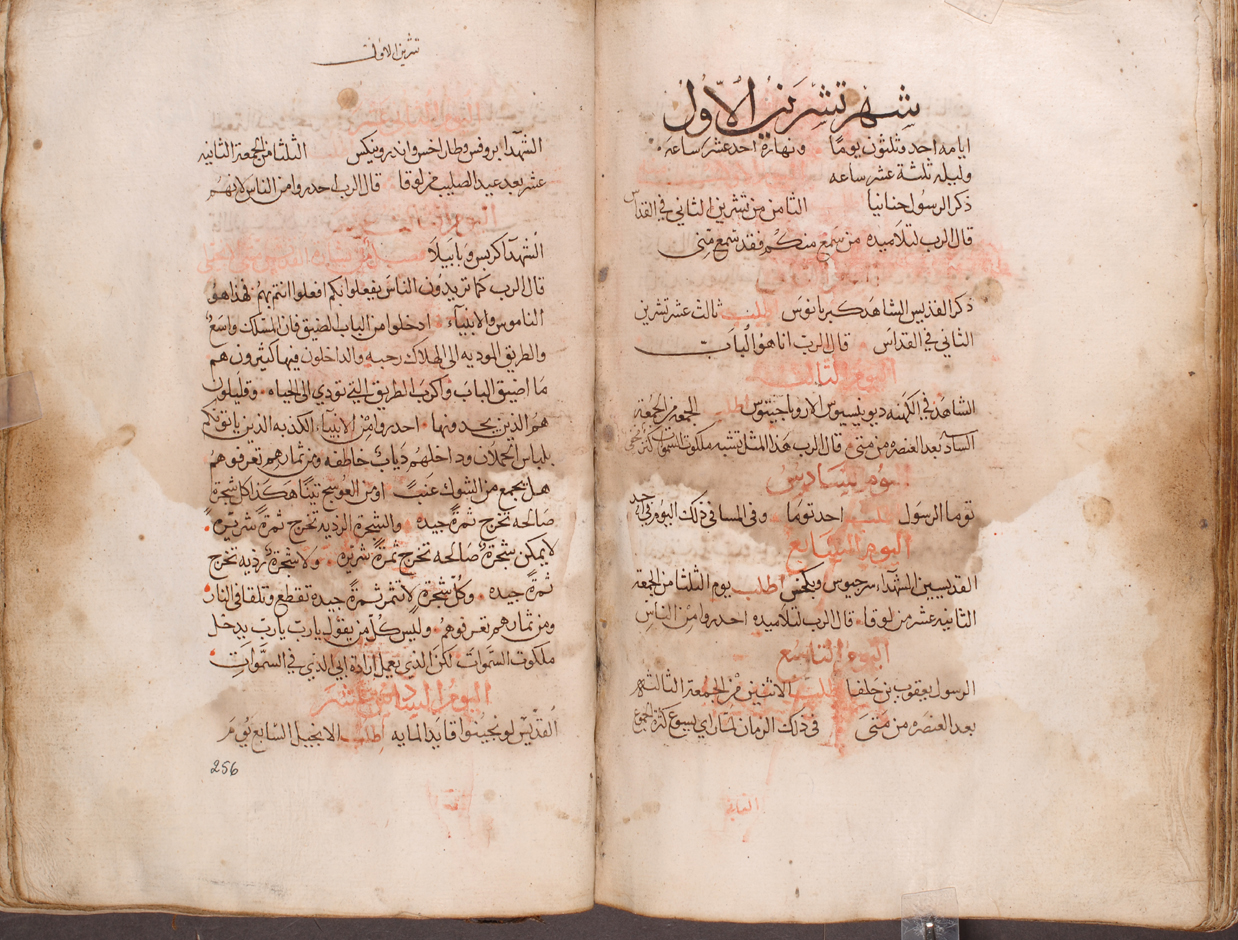 شهر تشرين الاول
ايامه احد وثلثون يومًا ونهاره احد عشر ساعه
ولبيله ثلثة عشر ساعه
ذكر الرسول حنانيا الثامن من تشرين الثاني في القداس
قال الرب لتلاميذه من سمع منكم فقد سمع مني
ذكر القديس الشاهد كبريانوس اطلب ثالث عشر تشرين
الثاني في القداس قال الرب انا هو الباب
اليوم الثالث
الشاهد في الكهنه ديونيسيوس الاروباجيتوس اطلب الجمعه من الجمعة
بعد العنصره من متي قال الرب هذا المثل تشبه ملكوت السموات
اليوم السادس
توما الرسول اطلب احد توما وفي المسا في ذلك اليوم
اليوم السابع
القديسين الشهداء سرجيوس وبكخس اطلب يوم الثلثا من الجمعة
الثانيه عشر من لوقا قال الرب لتلاميذه احدروا من الناس
اليوم التاسع
الرسول يعقوب بن حلفا اطلب الاثنين من الجمعة الثالثة
بعد العنصره من متى في ذلك الزمان لما راي يسوع كثرة الجموع
تشرين الاول
الشهدا بروفس وطاراخس واندرونيكس الثلثا من الجمعة الثانيه
عشر بعد عيد الصليب من لوقا قال الرب احدروا من الناس لانهم
الشهدا كربس وبابيلا
قال الرب كما تريدون الناس يفعلوا بكم افعلوا انتم بهم فهذا هو
الناموس والانبياء ادخلوا من الباب الضيق فان المسلك واسع
والطريق الموديه الى الهلاك رحبه والداخلون فيها كثيرون هم
ما اضيق الباب واكرب الطريق التي تودي الى الحياه وقليلون
هم الذين يجدونها احدروا من الانبياء الكدبه الذين ياتونكم
بلباس الحملان وداخلهم دياب خاطفه ومن ثمارهم تعرفوهم
هل يجمع من الشوك عنب او من العوسج تينا هكذا كل شجرة
صالحه تخرج ثمرة جيده والشجرة الرديه تخرج ثمرة شريره
لا يمكن شجرة صالحه تخرج ثمرة شريره ولا شجرة رديه تخرج
ثمرة جيده وكل شجرة لا تثمر ثمرة جيده تقطع وتلقا في النار
ومن ثمارهم تعرفوهم وليس كل من يقول يارب يارب يدخل
ملكوت السموات لكن الذي يعمل ارادة ابي الذي في السموات
اليوم السادس عشر
القديس لونجينوا قايد المايه اطلب الانجيل السابع يوم
256